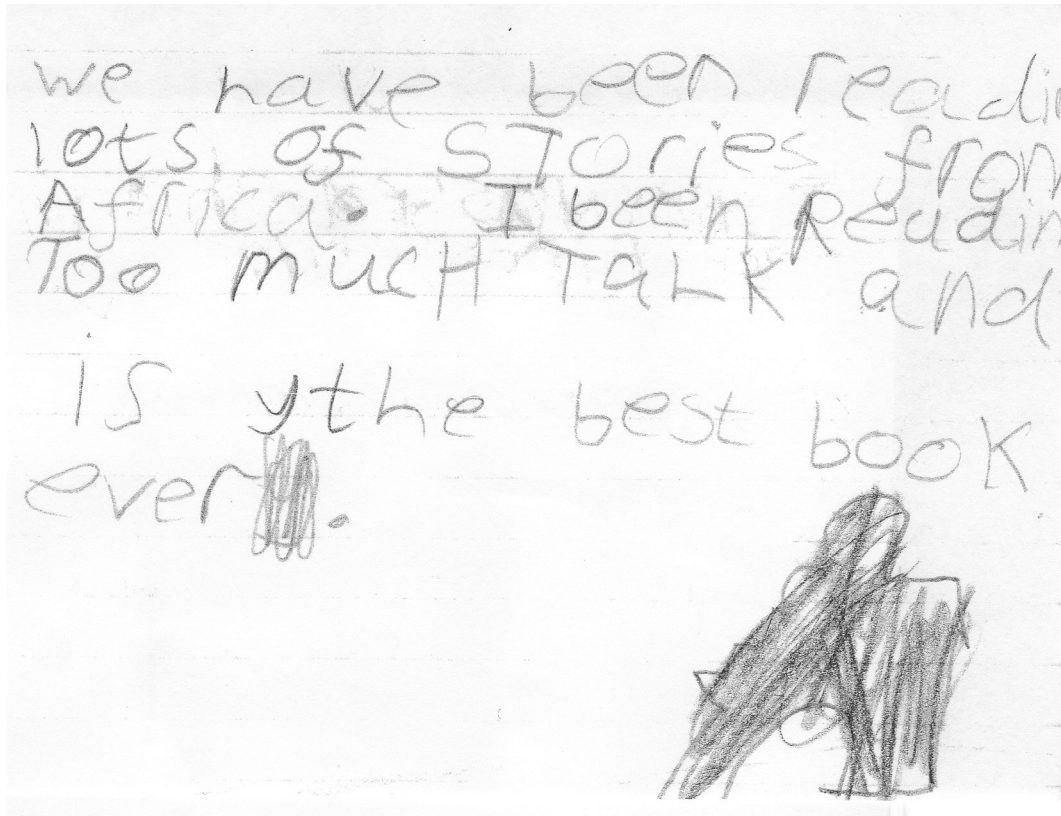 we have been readi
lots of STories from
Africa. I been Readin
Too mucH TaLK and
is ythe best book
ever.